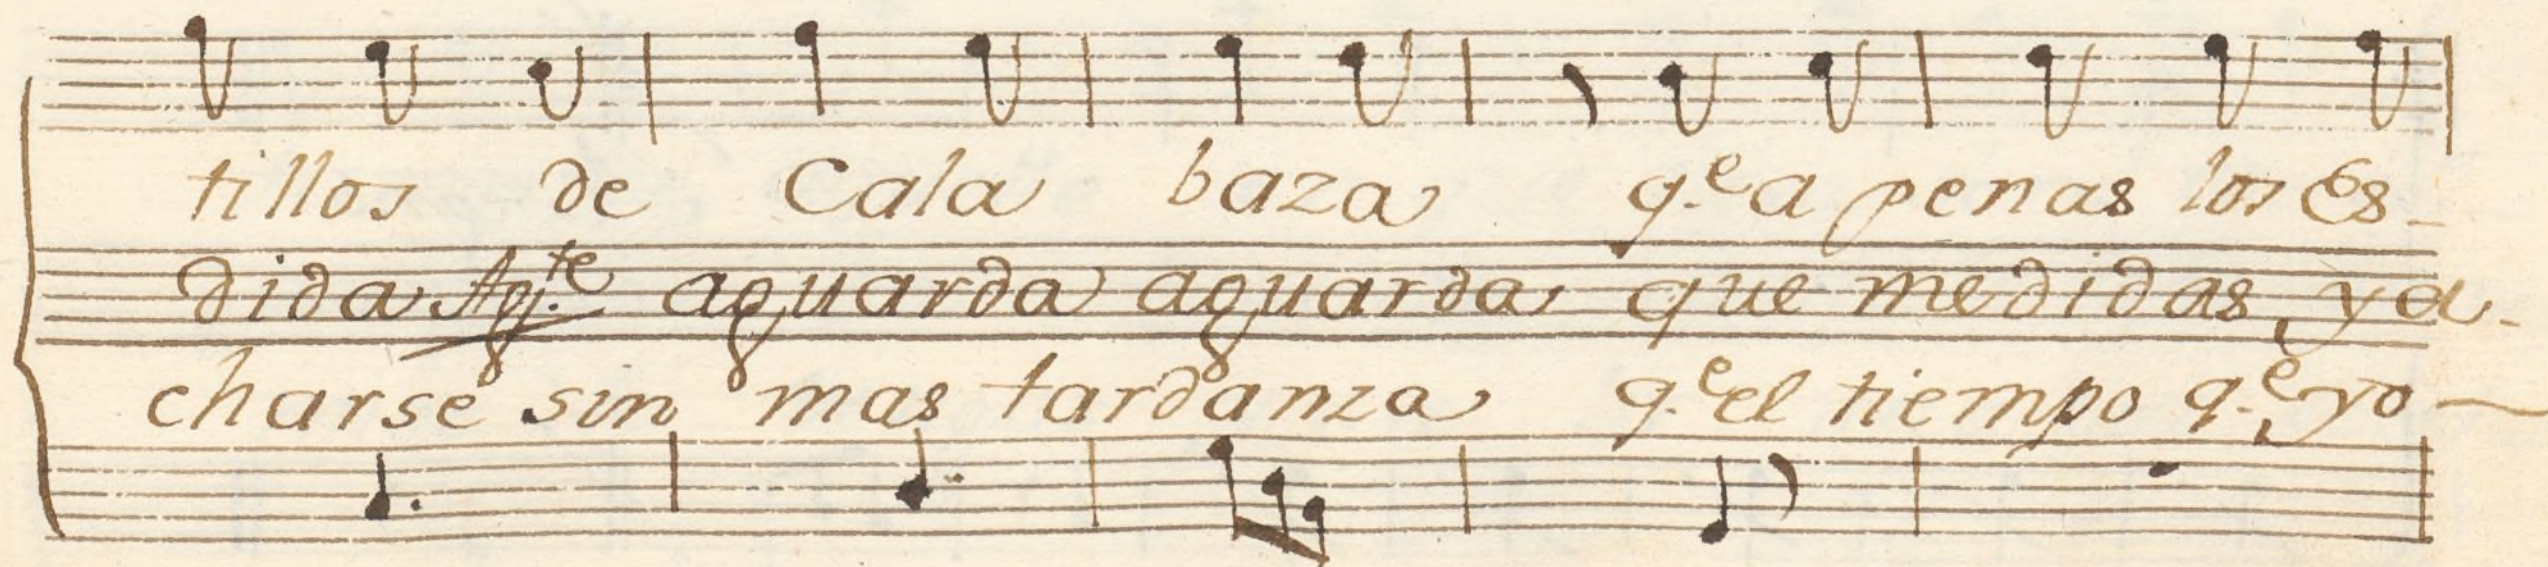 tillos de Cala baza q.e a penas los Es-
dida Agte aguarda aguarda que medidas, ya-
charse sin mas tardanza q.e el tiempo q.e yo